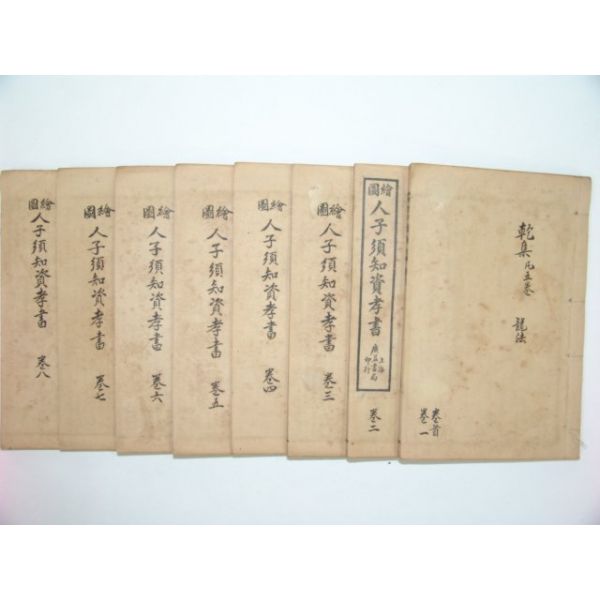 乾集 凡五卷 龍法
卷首
卷一
繪圖
人子須知資孝書
上海
廣益書局
印行
卷二
繪圖
人子須知資孝書
卷三
繪圖
人子須知資孝書
卷四
繪圖
人子須知資孝書
卷五
繪圖
人子須知資孝書
卷六
繪圖
人子須知資孝書
卷七
繪圖
人子須知資孝書
卷八